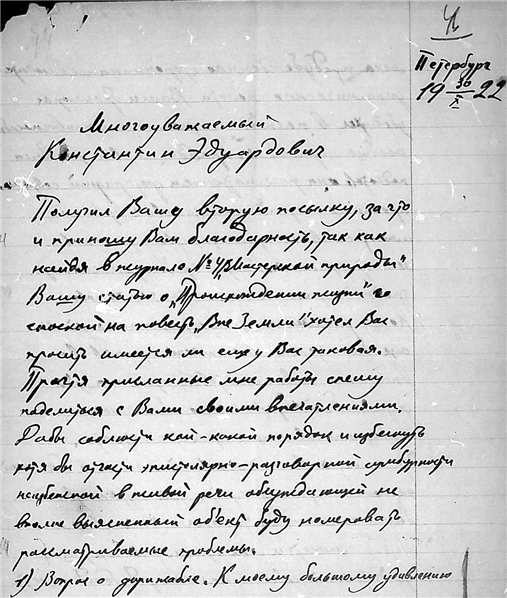 Петербург
19 30/X 22
Многоуважаемый
Константин Эдуардович
Получил Вашу вторую посылку, за что
и приношу Вам благодарность, так как
найдя в журнале № 4 „В Мастерской природы"
Вашу статью о „Происхождении жизни" со
сноской на повесть „Вне Земли" хотел Вас
просить имеется ли еще у Вас таковая.
Прочтя присланные мне работы спешу
поделиться с Вами своими впечатлениями.
Дабы соблюсти кой-какой порядок и избегнуть
хотя бы отчасти эпистолярно-разговорной сумбурности
неизбежной в живой речи обсуждающей не
вполне выясненный объект буду номеровать
рассматриваемые проблемы.
1) Вопрос о дирижабле. К моему большому удивлению